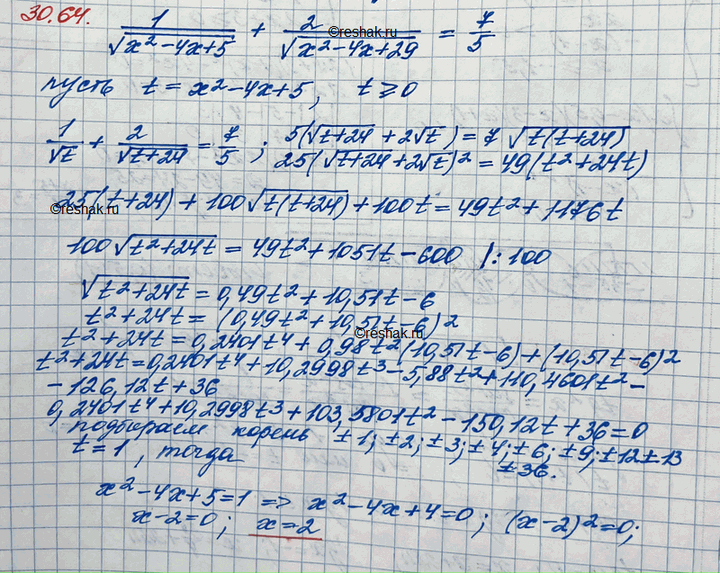 30.64.
1/√(x²-4x+5) + 2/√(x²-4x+29) = 7/5
©reshak.ru
пусть t = x²-4x+5, t ≥ 0
1/√t + 2/√(t+24) = 7/5 ; 5(√(t+24) + 2√t) = 7√(t(t+24))
25(√(t+24) + 2√t)² = 49(t²+24t)
25(t+24) + 100√(t(t+24)) + 100t = 49t² + 1176t
©reshak.ru
100√(t²+24t) = 49t² + 1051t - 600 |:100
√(t²+24t) = 0,49t² + 10,51t - 6
t²+24t = (0,49t² + 10,51t - 6)²
©reshak.ru
t²+24t = 0,2401t⁴ + 0,98t²(10,51t-6) + (10,51t-6)²
t²+24t = 0,2401t⁴ + 10,2998t³ - 5,88t² + 110,4601t² -
- 126,12t + 36
0,2401t⁴ + 10,2998t³ + 103,5801t² - 150,12t + 36 = 0
подбираем корень ±1; ±2; ±3; ±4; ±6; ±9; ±12 ±13
±36.
t = 1, тогда
x²-4x+5=1 => x²-4x+4=0; (x-2)²=0;
x-2=0; x=2